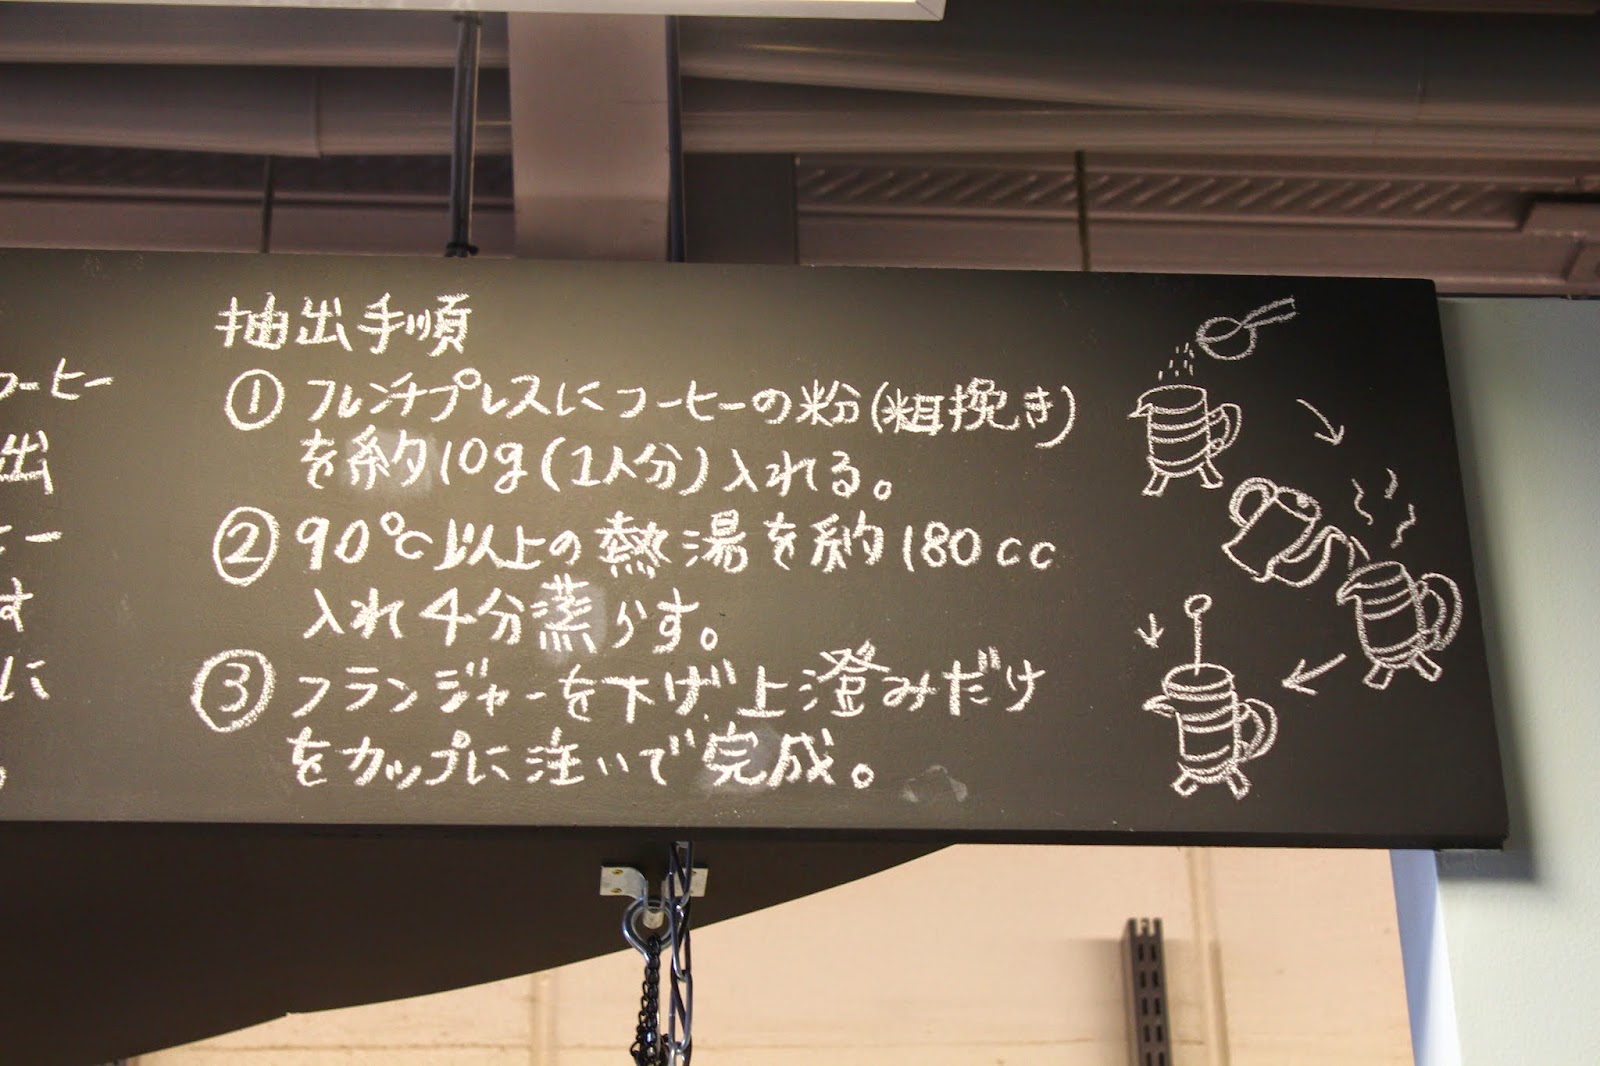 コーヒー
出
ヒー
す
に
抽出手順
① フレンチプレスにコーヒーの粉(粗挽き)
を約10g(1人分)入れる。
② 90℃以上の熱湯を約180cc
入れ4分蒸らす。
③ フランジャーを下げ上澄みだけ
をカップに注いで完成。